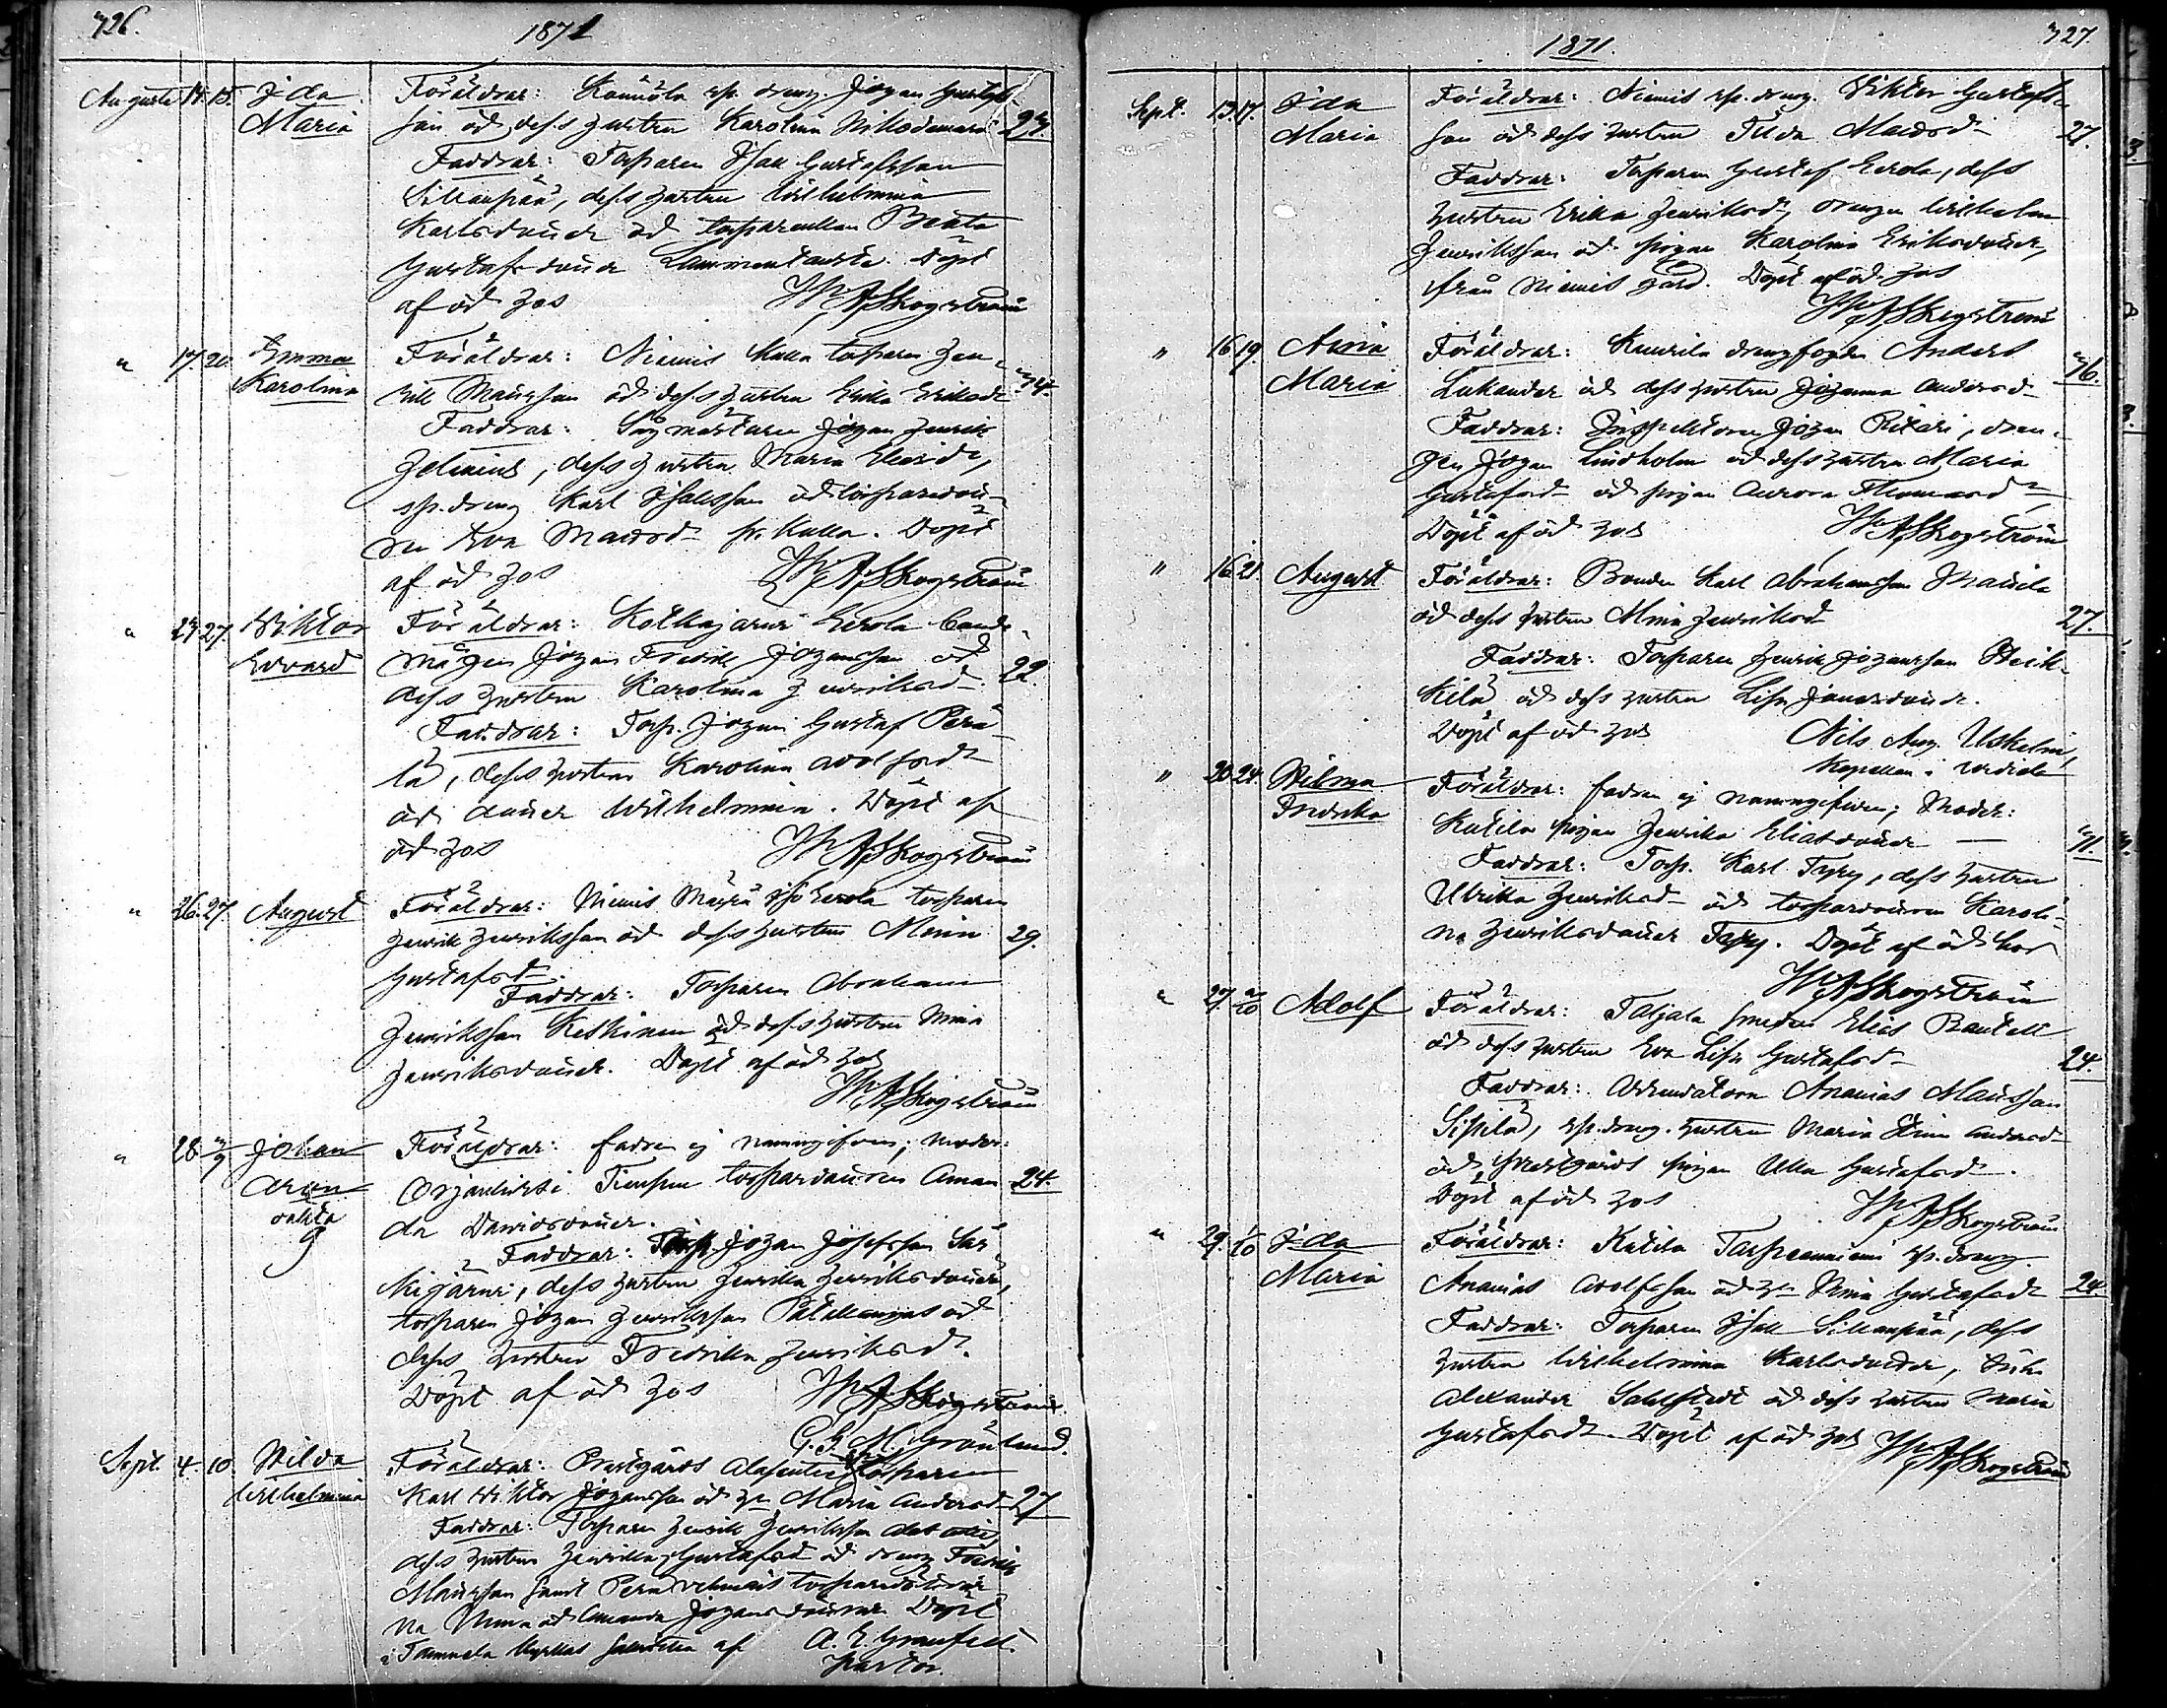 726.
1871
Augusti 14. 15. Ida Föräldrar: sp. dreng. Johan Gustafs-
Maria son och dess hustru Karolina Nikodemusd. 24.
Faddrar: Torparen Isak Gustafsson
Sillanpää, dess hustru Wilhelmina
Karlsdotter och torparenkan Beata
Gustafsdotter Lammentausta. Döpt
af och hos W. A. Skogström
" 17. 20. Emma Föräldrar: Niemis Kulla torparen Hen-
Karolina rik Mattsson och dess hustru Erika Eriksdr 34.
Faddrar: Sågmästaren Johan Henrik
Helenius, dess hustru Maria Eliaed.,
sp. dreng Karl Isaksson och torparedott-
ren Eva Mattsd. fr. Kulla. Döpt
af och hos W. A. Skogström
" 24. 27. Viktor Föräldrar: Kotkajärvi Eerola Bonde-
Edvard mågen Johan Fredrik Johansson och 22.
dess hustru Karolina Henriksd.
Faddrar: Torp. Johan Gustaf Perä-
lä, dess hustru Karolina Adolfsd.
och dotter Wilhelmina. Döpt af
och hos W. A. Skogström
" 26. 27. August Föräldrar: Niemis Eerola torparen
Henrik Henriksson och dess hustru Miina 29.
Gustafsd.
Faddrar: Torparen Abraham
Henriksson Keskinen och dess hustru Miina
Henriksdotter. Döpt af och hos
W. A. Skogström
" 28. 3/9 Johan Föräldrar: fadren ej namngifven; moder:
Aron torpardottren Aman- 24.
oäkta da Davidsdotter.
Faddrar: Torp. Johan Josefsson Sär-
kijärvi, dess hustru Henrika Henriksdotter,
torparen Johan Henriksson och
dess hustru Fredrika Henriksd.
Döpt af och hos W. A. Skogström.
G. G. M. Grönlund.
Sept. 4. 10. Hilda Föräldrar: Prestgårds torparen
Wilhelmina Karl Viktor Johansson och h. Maria Andersd. 27
Faddrar: Torparen Henrik Henriksson
dess hustru Henrika Gustafsd. och dreng Fredrik
Mattsson samt torparedöttrar-
na Miina och Amanda Johansdöttrar. Döpt
i Tammela kyrkas sakristia af A. E. Granfelt.
Pastor.
1871.
727.
Sept. 13. 17. Ida Föräldrar: Niemis sp. dreng. Viktor Gustafs-
Maria son och dess hustru Tilda Mattsd. 27.
Faddrar: Torparen Gustaf Eerola, dess
hustru Erika Henriksd., drengen Wilhelm
Henriksson och pigan Karolina Eriksdotter,
från Niemis gård. Döpt af och hos
W. A. Skogström
" 16. 19. Anna Föräldrar: Kuurila drengfogden Anders
Maria Lukander och dess hustru Johanna Andersd. 36.
Faddrar: Inspektoren Johan Ritari, dren-
gen Johan Lindholm och dess hustru Maria
Gustafsd. och pigan Aurora Thomasd.
Döpt af och hos W. A. Skogström
" 16. 21. August Föräldrar: Bonden Karl Abrahamsson Mattila
och dess hustru Miina Henriksd. 27.
Faddrar: Torparen Henrik Johansson Heik-
kilä och dess hustru Lisa Jonasdotter.
Döpt af och hos Nils Aug. Uskelin,
Kapellan i Urdiala
" 20. 24. Hilma Föräldrar: fadren ej namngifven; Moder:
Fredrika Kutila pigan Henrika Eliasdotter 31.
Faddrar: Torp. Karl Typy, dess hustru
Ulrika Henriksd. och torpardottren Karoli-
na Henriksdotter Typy. Döpt af och hos
W. A. Skogström
" 27. /10 Adolf Föräldrar: Taljala smeden Elias Bantell
och dess hustru Eva Lisa Gustafsd. 24.
Faddrar: Arrendatorn Ananias Mattsson
Sipilä, sp. dreng. hustru Maria Stina Andersd.
och prestgårds pigan Ulla Gustafsd.
Döpt af och hos W. A. Skogström
" 29. 1/10 Ida Föräldrar: Kutila sp. dreng.
Maria Ananias Adolfsson och h. Miina Gustafsdr 24
Faddrar: Torparen Isak Sillanpää, dess
hustru Wilhelmina Karlsdotter,
Alexander Sahlstedt och dess hustru Maria
Gustafsdr. Döpt af och hos W. A. Skogström